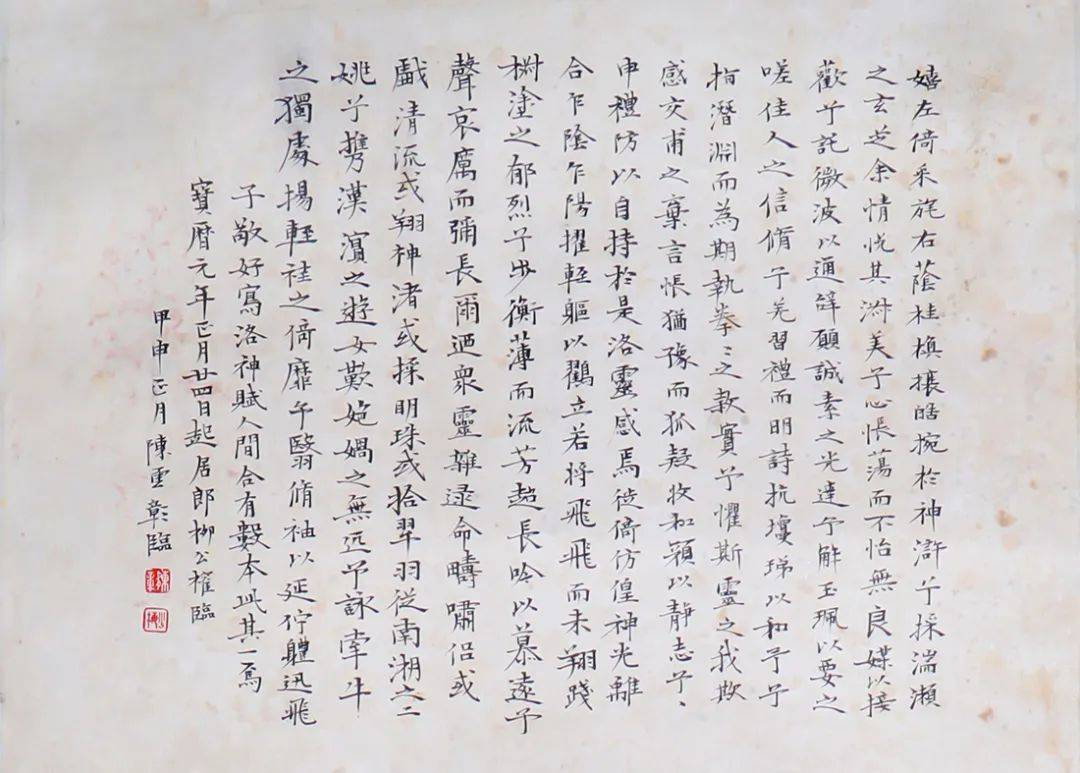 嬉左倚采旄右蔭桂旗攘皓捥於神滸兮採湍瀨
之玄芝余情悅其淑美兮心悵蕩而不怡無良媒以接
歡兮託微波以通辭願誠素之先達兮解玉珮以要之
嗟佳人之信脩兮羌習禮而明詩抗瓊珶以和予兮
指潛淵而為期執拳〻之款實兮懼斯靈之我欺
感交甫之棄言悵猶豫而狐疑收和顏以靜志兮、
申禮防以自持於是洛靈感焉徙倚仿偟神光離
合乍陰乍陽擢輕軀以鶴立若將飛飛而未翔踐
椒塗之郁烈兮步衡薄而流芳超長吟以慕遠兮
聲哀厲而彌長爾迺衆靈雜遝命疇嘯侶或
戲清流或翔神渚或採明珠或拾翠羽從南湘之二
姚兮攜漢濱之遊女歎炮媧之無匹兮詠牽牛
之獨處揚輕袿之倚靡兮翳脩袖以延佇軆迅飛
子敬好寫洛神賦人間合有數本此其一焉
寶曆元年正月廿四日起居郎柳公權臨
甲申正月陳雲彰臨